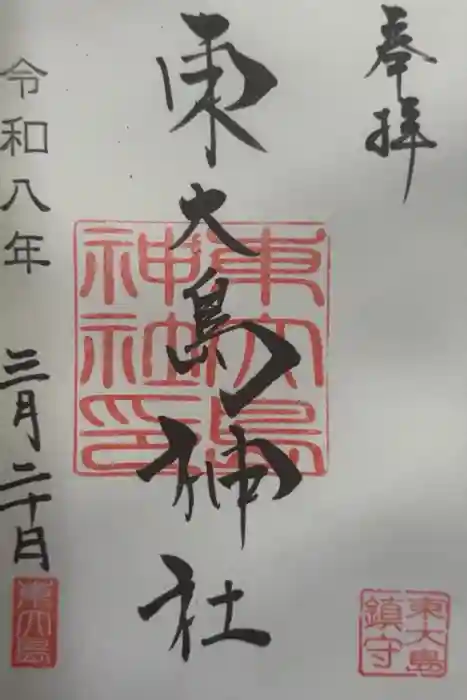 奉拝
東大島神社
令和八年 三月二十日
東大島
神社印
東大島
鎮守
東大島